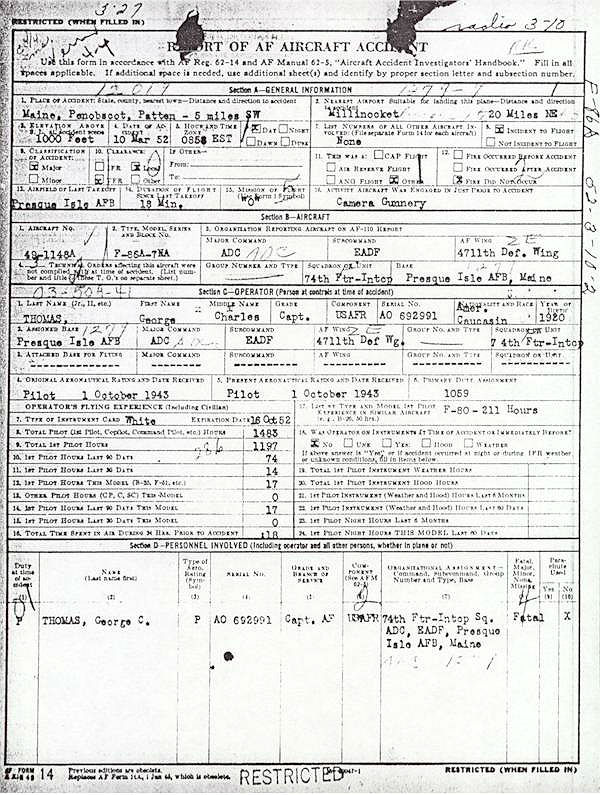 3-27
RESTRICTED (WHEN FILLED IN)
radio 3-10
REPORT OF AF AIRCRAFT ACCIDENT
Use this form in accordance with AF Reg. 62-14 and AF Manual 62-5, "Aircraft Accident Investigators' Handbook." Fill in all
spaces applicable. If additional space is needed, use additional sheet(s) and identify by proper section letter and subsection number.
Section A—GENERAL INFORMATION
1. PLACE OF ACCIDENT: State, county, nearest town—Distance and direction to accident
Maine, Penobscot, Patten - 5 miles SW
2. NEAREST AIRPORT Suitable for landing this plane—Distance and direction
to accident
Millinocket 20 Miles NE
3. ELEVATION ABOVE
S. L. at Accident scene
1000 Feet
4. DATE OF ACCIDENT
10 Mar 52
5. HOUR AND TIME ZONE
0858 EST
6. DAY NIGHT
DAWN DUSK
7. LIST NUMBERS OF ALL OTHER AIRCRAFT INVOLVED (File separate Form 14 for each aircraft)
None
8. INCIDENT TO FLIGHT
NOT INCIDENT TO FLIGHT
9. CLASSIFICATION OF ACCIDENT
Major
Minor
10. CLEARANCE
IFR Local
VFR Other
IF OTHER—
From:
To:
11. THIS WAS A: CAP FLIGHT
AIR RESERVE FLIGHT
ANG FLIGHT OTHER
12. FIRE OCCURRED BEFORE ACCIDENT
FIRE OCCURRED AFTER ACCIDENT
FIRE DID NOT OCCUR
13. AIRFIELD OF LAST TAKEOFF
Presque Isle AFB
14. DURATION OF FLIGHT
SINCE LAST TAKEOFF
18 Min.
15. MISSION OF FLIGHT
(Use Form 1 Symbol)
16. ACTIVITY AIRCRAFT WAS ENGAGED IN JUST PRIOR TO ACCIDENT
Camera Gunnery
Section B—AIRCRAFT
1. AIRCRAFT NO.
49-1148A
2. TYPE, MODEL, SERIES
AND BLOCK NO.
F-86A-7NA
3. ORGANIZATION REPORTING AIRCRAFT ON AF-110 REPORT
MAJOR COMMAND
ADC
SUBCOMMAND
EADF
AF WING
4711th Def. Wing
4. TECHNICAL ORDERS affecting this aircraft were
not complied with at time of accident. (List number
and title of these T. O.'s on separate sheet.)
GROUP NUMBER AND TYPE
SQUADRON OR UNIT
74th Ftr-Intcp
BASE
Presque Isle AFB, Maine
Section C—OPERATOR (Person at controls at time of accident)
1. LAST NAME (Jr., II, etc.)
THOMAS,
FIRST NAME
George
MIDDLE NAME
Charles
GRADE
Capt.
COMPONENT
USAFR
SERIAL NO.
AO 692991
NATIONALITY AND RACE
Amer.
Caucasin
YEAR OF BIRTH
1920
2. ASSIGNED BASE
Presque Isle AFB
MAJOR COMMAND
ADC
SUBCOMMAND
EADF
AF WING
4711th Def Wg.
GROUP NO. AND TYPE
SQUADRON OR UNIT
74th/Ftr-Intcp
3. ATTACHED BASE FOR FLYING
MAJOR COMMAND
SUBCOMMAND
AF WING
GROUP NO. AND TYPE
SQUADRON OR UNIT
4. ORIGINAL AERONAUTICAL RATING AND DATE RECEIVED
Pilot 1 October 1943
5. PRESENT AERONAUTICAL RATING AND DATE RECEIVED
Pilot 1 October 1943
6. PRIMARY DUTY ASSIGNMENT
1059
OPERATOR'S FLYING EXPERIENCE (Including Civilian)
7. TYPE OF INSTRUMENT CARD White EXPIRATION DATE 16 Oct 52
8. TOTAL PILOT (1st Pilot, Copilot, Command Pilot, etc.) HOURS 1483
9. TOTAL 1ST PILOT HOURS 1197
10. 1ST PILOT HOURS LAST 90 DAYS 74
11. 1ST PILOT HOURS LAST 30 DAYS 14
12. 1ST PILOT HOURS THIS MODEL (B-25, F-61, etc.) 17
13. OTHER PILOT HOURS (CP, C, SC) THIS MODEL 0
14. 1ST PILOT HOURS LAST 90 DAYS THIS MODEL 17
15. 1ST PILOT HOURS LAST 30 DAYS THIS MODEL 0
16. TOTAL TIME SPENT IN AIR DURING 24 HRS. PRIOR TO ACCIDENT :18
17. LIST BY TYPE AND MODEL 1ST PILOT
EXPERIENCE IN SIMILAR AIRCRAFT
(e. g., B-26, 50 hrs.)
F-80-211 Hours
18. WAS OPERATOR ON INSTRUMENTS AT TIME OF ACCIDENT OR IMMEDIATELY BEFORE?
NO UNK YES: HOOD WEATHER
If above answer is "Yes," or if accident occurred at night or during IFR weather,
or unknown conditions, fill in items below.
19. TOTAL 1ST PILOT INSTRUMENT WEATHER HOURS
20. TOTAL 1ST PILOT INSTRUMENT HOOD HOURS
21. 1ST PILOT INSTRUMENT (Weather and Hood) HOURS LAST 6 MONTHS
22. 1ST PILOT INSTRUMENT (Weather and Hood) HOURS LAST 60 DAYS
23. 1ST PILOT NIGHT HOURS LAST 6 MONTHS
24. 1ST PILOT NIGHT HOURS THIS MODEL LAST 60 DAYS
Section D—PERSONNEL INVOLVED (Including operator and all other persons, whether in plane or not)
Duty
at time
of accident
(1)
NAME
(Last name first)
(2)
Type of
Aero.
Rating
(Symbol)
(3)
SERIAL NO.
(4)
GRADE AND
BRANCH OF
SERVICE
(5)
COMPONENT
(See AFM
(6)
ORGANIZATIONAL ASSIGNMENT—
Command, Subcommand, Group
Number and Type, Base
(7)
Fatal,
Major,
Minor,
None,
Missing
Parachute
Used
Yes
(9)
No
(10)
P THOMAS, George C. P AO 692991 Capt. AF USAFR 74th Ftr-Intcp Sq. Fatal X
ADC, EADF, Presque
Isle AFB, Maine
AF FORM 14
Previous editions are obsolete.
RESTRICTED
RESTRICTED (WHEN FILLED IN)